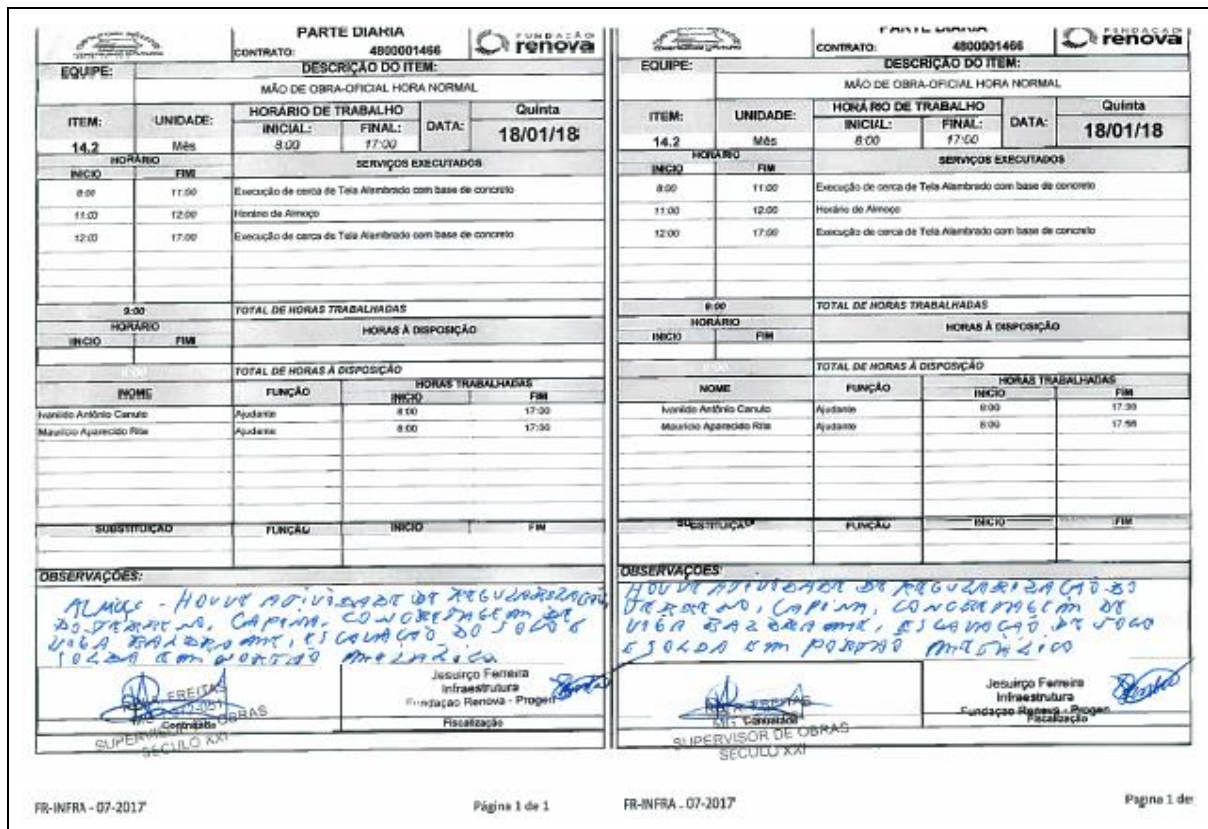 PARTE DIARIA
CONTRATO: 4800001466
FUNDAÇÃO
renova
EQUIPE:
DESCRIÇÃO DO ITEM:
MÃO DE OBRA-OFICIAL HORA NORMAL
ITEM:
UNIDADE:
HORÁRIO DE TRABALHO
DATA:
Quinta
INICIAL:
FINAL:
18/01/18
14.2
Mês
8:00
17:00
HORÁRIO
SERVIÇOS EXECUTADOS
INICIO
FIM
8:00 11:00 Execução de cerca de Tela Alambrado com base de concreto
11:00 12:00 Horário de Almoço
12:00 17:00 Execução de cerca de Tela Alambrado com base de concreto
9:00 TOTAL DE HORAS TRABALHADAS
HORÁRIO
HORAS À DISPOSIÇÃO
INICIO FIM
TOTAL DE HORAS À DISPOSIÇÃO
NOME
FUNÇÃO
HORAS TRABALHADAS
INICIO FIM
Ivanildo Antônio Canuto Ajudante 8:00 17:00
Maurício Aparecido Rita Ajudante 8:00 17:00
SUBSTITUIÇÃO FUNÇÃO INICIO FIM
OBSERVAÇÕES:
HOUVE ATIVIDADE DE REGULARIZAÇÃO
DO TERRENO, CAPINA, CONCRETAGEM DE
VIGA BALDRAME, ESCAVAÇÃO DO SOLO E
SOLDA EM PORTÃO METÁLICO.
FREITAS
Contratada
SUPERVISOR DE OBRAS
SECULO XXI
Jesuirço Ferreira
Infraestrutura
Fundaçao Renova - Progen
Fiscalização
FR-INFRA - 07-2017'
Página 1 de 1
PARTE DIARIA
CONTRATO: 4800001466
FUNDAÇÃO
renova
EQUIPE:
DESCRIÇÃO DO ITEM:
MÃO DE OBRA-OFICIAL HORA NORMAL
ITEM:
UNIDADE:
HORÁRIO DE TRABALHO
DATA:
Quinta
INICIAL:
FINAL:
18/01/18
14.2
Mês
8:00
17:00
HORÁRIO
SERVIÇOS EXECUTADOS
INICIO
FIM
8:00 11:00 Execução de cerca de Tela Alambrado com base de concreto
11:00 12:00 Horário de Almoço
12:00 17:00 Execução de cerca de Tela Alambrado com base de concreto
9:00 TOTAL DE HORAS TRABALHADAS
HORÁRIO
HORAS À DISPOSIÇÃO
INICIO FIM
TOTAL DE HORAS À DISPOSIÇÃO
NOME
FUNÇÃO
HORAS TRABALHADAS
INICIO FIM
Ivanildo Antônio Canuto Ajudante 8:00
Maurício Aparecido Rita Ajudante 8:00
SUBSTITUIÇÃO FUNÇÃO INICIO FIM
OBSERVAÇÕES:
HOUVE ATIVIDADE DE REGULARIZAÇÃO DO
TERRENO, CAPINA, CONCRETAGEM DE
VIGA BALDRAME, ESCAVAÇÃO DE SOLO
E SOLDA EM PORTÃO METÁLICO
FREITAS
Contratada
SUPERVISOR DE OBRAS
SECULO XXI
Jesuirço Ferreira
Infraestrutura
Fundaçao Renova - Progen
Fiscalização
FR-INFRA - 07-2017'
Pagina 1 de